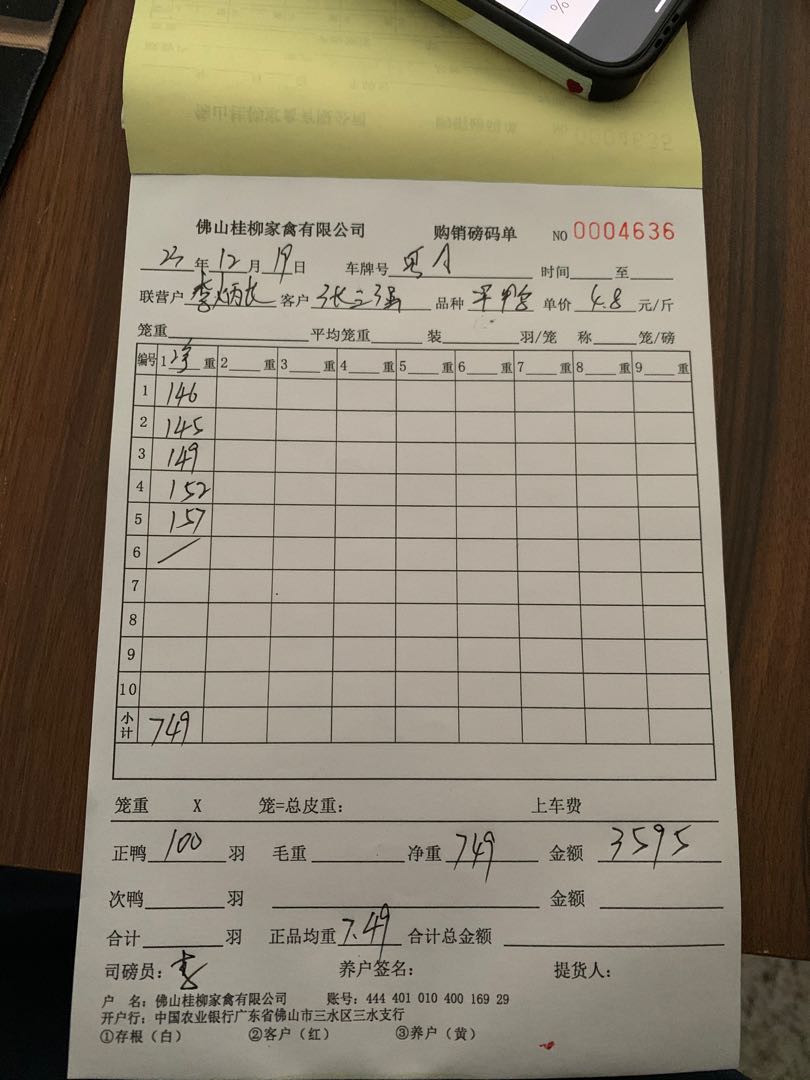 佛山桂柳家禽有限公司 购销磅码单 NO 0004636
23 年 12 月 19 日 车牌号 粤A 时间 至
联营户 李炳长 客户 张立强 品种 单价 4.8 元/斤
笼重 平均笼重 装 羽/笼 称 笼/磅
编号 1 净 重 2 重 3 重 4 重 5 重 6 重 7 重 8 重 9 重
1 146
2 145
3 149
4 152
5 157
6 /
7
8
9
10
小计 749
笼重 X 笼=总皮重: 上车费
正鸭 100 羽 毛重 净重 749 金额 3595
次鸭 羽 金额
合计 羽 正品均重 7.49 合计总金额
司磅员: 李 养户签名: 提货人:
户 名: 佛山桂柳家禽有限公司 账号: 444 401 010 400 169 29
开户行: 中国农业银行广东省佛山市三水区三水支行
①存根(白) ②客户(红) ③养户(黄)